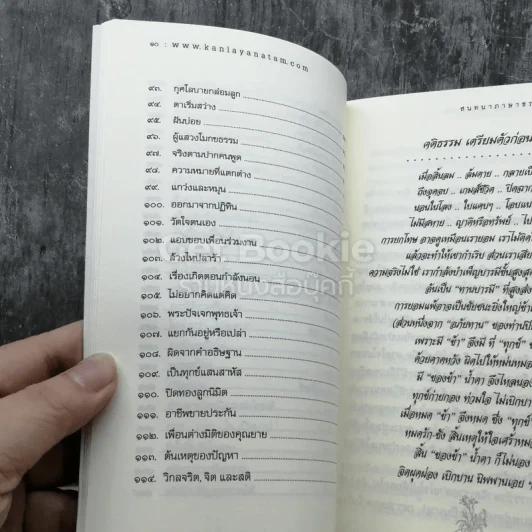 ๑๐ : www.kanlayanatam.com
๙๓. กุศโลบายกล่อมลูก
๙๔. ตาเริ่มสว่าง
๙๕. ฝันบ่อย
๙๖. ผู้แสวงโมกขธรรม
๙๗. จริงตามปากคนพูด
๙๘. ความหมายที่แตกต่าง
๙๙. แกว่งและหมุน
๑๐๐. ออกมาจากปฏิทิน
๑๐๑. วัดใจตนเอง
๑๐๒. แอบชอบเพื่อนร่วมงาน
๑๐๓. ล้วงไหปลาร้า
๑๐๔. เรื่องเกิดตอนกำลังนอน
๑๐๕. ไม่อยากคิดแต่คิด
๑๐๖. พระปัจเจกพุทธเจ้า
๑๐๗. แยกกันอยู่หรือเปล่า
๑๐๘. ผิดจากคำอธิษฐาน
๑๐๙. เป็นทุกข์แสนสาหัส
๑๑๐. ปิดทองลูกนิมิต
๑๑๑. อาชีพขายประกัน
๑๑๒. เพื่อนต่างมิติของคุณยาย
๑๑๓. ต้นเหตุของปัญหา
๑๑๔. วิกลจริต, จิต และสติ
Get Bookie
ร้านหนังสือบุ๊คกี้
สนทนาภาษาธร
คติธรรม เตรียมตัวก่อน
เมื่อสิ้นลม .. ล้มตาย .. กลายเป็
ถึงจุดจบ .. เกมส์ชีวิต .. ปิดฉาก
นอนในโลง .. ในแคบๆ .. โอบแน
ไม่มีใครตาย .. ญาติหรือทรัพย์ ..
การยกโทษ อาจดูเหมือนเรายอม เราไม่ดีด้
แล้วจะทำให้เขากำเริบ ส่วนเราเสีย
ความจริงไม่ใช่ เรากำลังบำเพ็ญบารมีขั้นสูง
อันเป็น "ทานบารมี" ที่สูงส่ง
การยอมแพ้อาจเป็นชัยชนะยิ่งใหญ่ข้า
(ส่วนหนึ่งจาก "อภัยทาน" ของท่านปั
เพราะมี "ข้า" จึงมี ที่ "ทุกข์" ข
ด้วยคาดหวัง นึกไปให้หม่นหมอ
มี "ของข้า" น้ำตา จึงไหลนอง
ทุกข์ก่ายกอง ท่วมใจ ไม่เบิกบา
เมื่อหมด "ข้า" จึงหมด ซึ่ง "ทุกข์"
หมดรัก-ชัง สิ้นเหตุให้ใจเศร้าหม
สิ้น "ของข้า" น้ำตา ก็ไม่นอง
จิตผุดผ่อง เบิกบาน นิพพานเอย ๆ